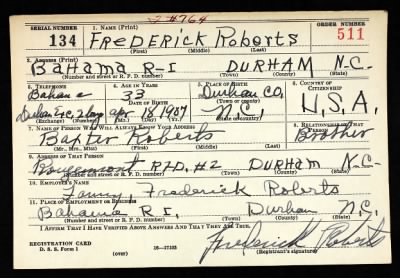 2 #764
SERIAL NUMBER 1. NAME (Print) ORDER NUMBER
134 FREDERICK ROBERTS 511
(First) (Middle) (Last)
2. ADDRESS (Print)
BAHAMA R-I DURHAM N.C.
(Number and street or R. F. D. number) (Town) (County) (State)
3. TELEPHONE 4. AGE IN YEARS 5. PLACE OF BIRTH 6. COUNTRY OF CITIZENSHIP
Bahama 33 Durham CO.
DATE OF BIRTH (Town or county)
Apr 14 1907 N.C. U.S.A.
(Exchange) (Number) (Mo.) (Day) (Yr.) (State or country)
7. NAME OF PERSON WHO WILL ALWAYS KNOW YOUR ADDRESS 8. RELATIONSHIP OF THAT PERSON
Baxter Roberts Brother
(Mr., Mrs., Miss) (First) (Middle) (Last)
9. ADDRESS OF THAT PERSON
Rougemont R.F.D. #2 DURHAM N.C.
(Number and street or R. F. D. number) (Town) (County) (State)
10. EMPLOYER'S NAME
Frederick Roberts
11. PLACE OF EMPLOYMENT OR BUSINESS
Bahama R I. Durham N.C.
(Number and street or R. F. D. number) (Town) (County) (State)
I AFFIRM THAT I HAVE VERIFIED ABOVE ANSWERS AND THAT THEY ARE TRUE.
Frederick Roberts
REGISTRATION CARD
D. S. S. Form 1 (over) 16-17105 (Registrant's signature)